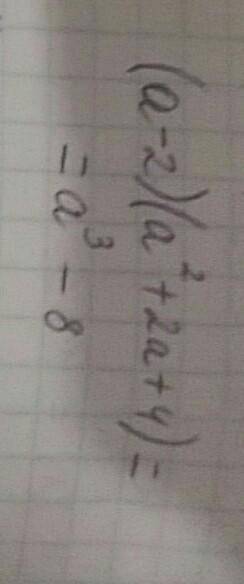 (a-2)(a²+2a+4)=
=a³-8